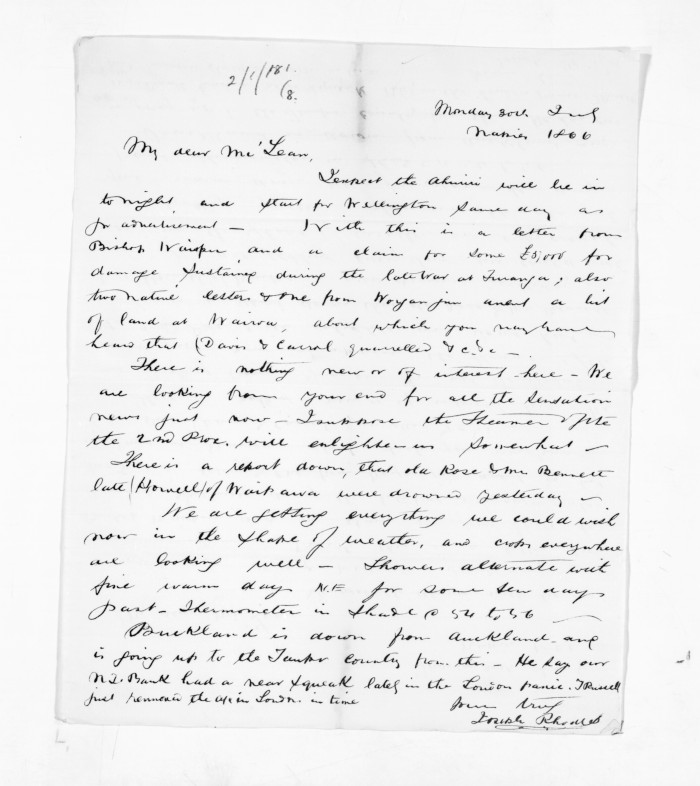 2/1/181
/8.
Monday 30th July
Napier 1866
My dear McLean,
I expect the Ahuriri will be in
tonight, and start for Wellington same day as
pr advertisement — With this is a letter from
Bishop and a claim for some £5,000 for
damage sustained during the late War at Turanga; also
two native letters & one from anent a bit
of land at Wairoa, about which you may have
heard that (Davis & Carrol quarrelled &c &c —
There is nothing new or of interest here — We
are looking from your end for all the sensation
news just now — I suppose the Steamer after
the 2nd Prox. will enlighten us somewhat —
There is a report down, that old Rose & Mr Bennett
late (Howell) of Waipawa were drowned yesterday —
We are getting everything we could wish
now in the shape of weather, and crops everywhere
are looking well — Showers alternate with
fine warm days N.E for some few days
past — Thermometer in Shade @ 54 to 56 —
Buckland is down from Auckland and
is going up to the country from this — He says our
N.Z. Bank had a near squeak lately in the London panic. T Russell
just in London in time
Yours truly
Joseph Rhodes